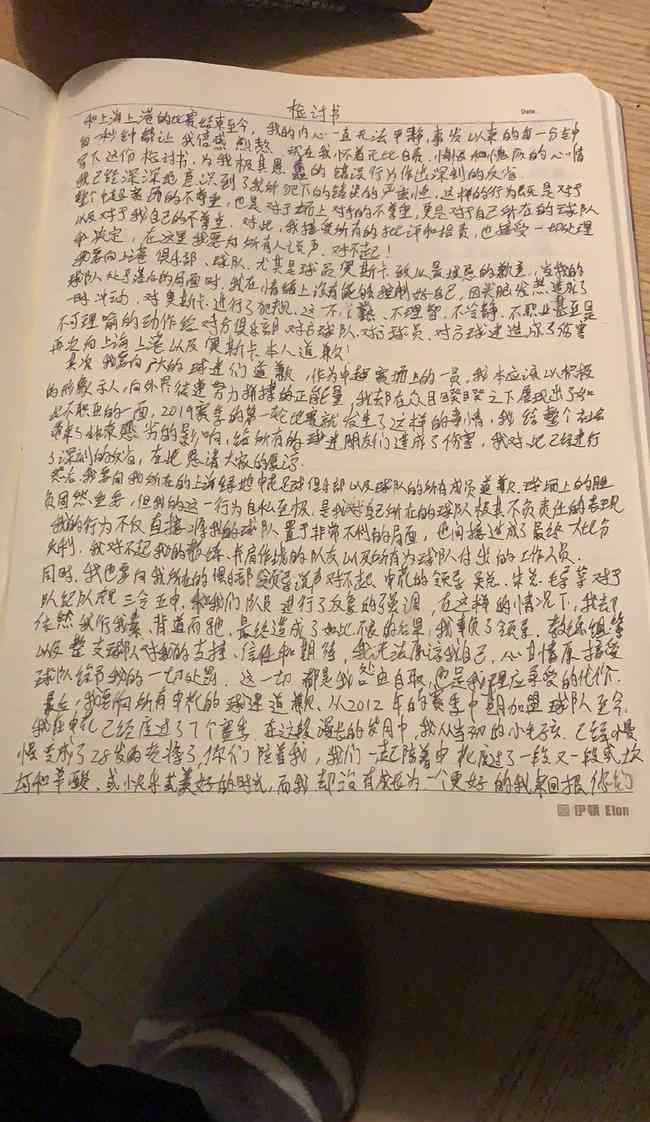 检讨书
Date.
和上海上港的比赛结束至今，我的内心一直无法平静，事发以来的每一分钟
每一秒钟都让我倍感煎熬。现在我怀着无比自责、懊悔和愧疚的心情
写下这份检讨书，为我极其愚蠢的错误行为作出深刻的反省。
我已经深深地意识到了我所犯下的错误的严重性，这样的行为既是对于
整个中超赛场的不尊重，也是对于场上对手的不尊重，更是对于自己所在的球队
以及对于我自己的不尊重。对此，我接受所有的批评和指责，也接受一切处理
和决定，在这里我要向所有人说声，对不起！
我要向上港俱乐部、球队、尤其是球员奥斯卡致以最诚恳的歉意，当我的
球队处于落后的局面时，我在情绪上没有能够控制好自己，因头脑发热造成了
一时冲动，对奥斯卡进行了犯规。这一不、不理智、不冷静、不职业甚至是
不可理喻的动作给对方俱乐部对方球队、对方球员、对方球迷造成了伤害
再次向上海上港以及奥斯卡本人道歉！
其次我要向广大的球迷们道歉，作为中超赛场上的一员，我本应该以积极
的形象示人，向外界传递努力拼搏的正能量，我却在众目睽睽之下展现出了如
此不职业的一面，2019赛季的第一轮比赛就发生了这样的事情，我给整个社会
带来了非常恶劣的影响，给所有的球迷朋友们造成了伤害，我对此已经进行
了深刻的反省，在此恳请大家的原谅
然后我要向我所在的上海绿地申花足球俱乐部以及球队的所有成员道歉，球场上的胜
负固然重要，但我的这一行为自私至极，是我对自己所在的球队极其不负责任的表现
我的行为不仅直接将我的球队置于非常不利的局面，也间接造成了最终大比分
失利，我对不起我的教练、并肩作战的队友以及所有为球队付出的工作人员。
同时，我也要向我所在的俱乐部领导说声对不起，申花的领导吴总、朱总、毛导等对于
队纪队规三令五申，和我们队员进行了反复的强调，在这样的情况下，我却
依然我行我素、背道而驰，最终造成了如此不良的后果，我辜负了领导、教练组等
以及整支球队对我的支持、信任和期待，我无法原谅我自己，心甘情愿接受
球队给予我的一切处罚。这一切都是我咎由自取，也是我理应承受的代价。
最后，我要向所有申花的球迷道歉，从2012年的赛季中期加盟球队至今，
我在申花已经度过了7个赛季，在这段漫长的岁月中，我从当初的小毛孩，已经慢
慢变成了28岁的老将了，你们陪着我，我们一起陪着申花度过了一段又一段或坎
坷和辛酸、或快乐或美好的时光，而我却没有成长为一个更好的我来回报你们
伊顿 Eton